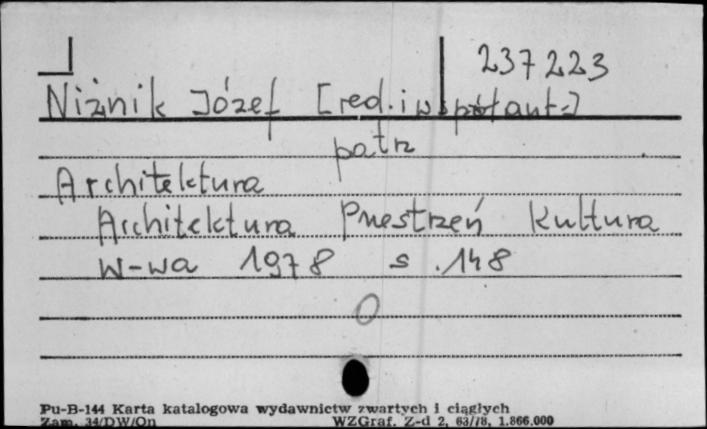 237223
Niżnik Józef [red. i współaut.]
patrz
Architektura
Architektura Przestrzeń Kultura
W-wa 1978 s. 148
Pu-B-144 Karta katalogowa wydawnictw zwartych i ciągłych
Zam. 34/DW/On WZGraf. Z-d 2, 63/78, 1.866.000